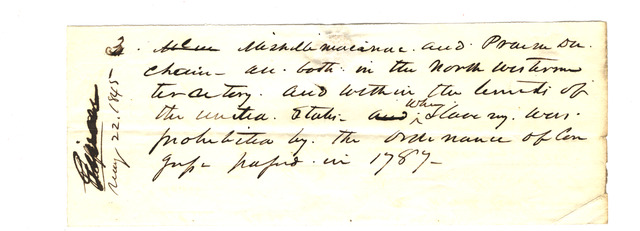 3. Michillimacinac. and Prarie Du.
chain - are both. in the North Western
teretery. and within the limits of
the united. States - and Where Slavery. was.
prohibited by. the Ordinance of Con
gress passed. in 1787 -
May 22. 1845